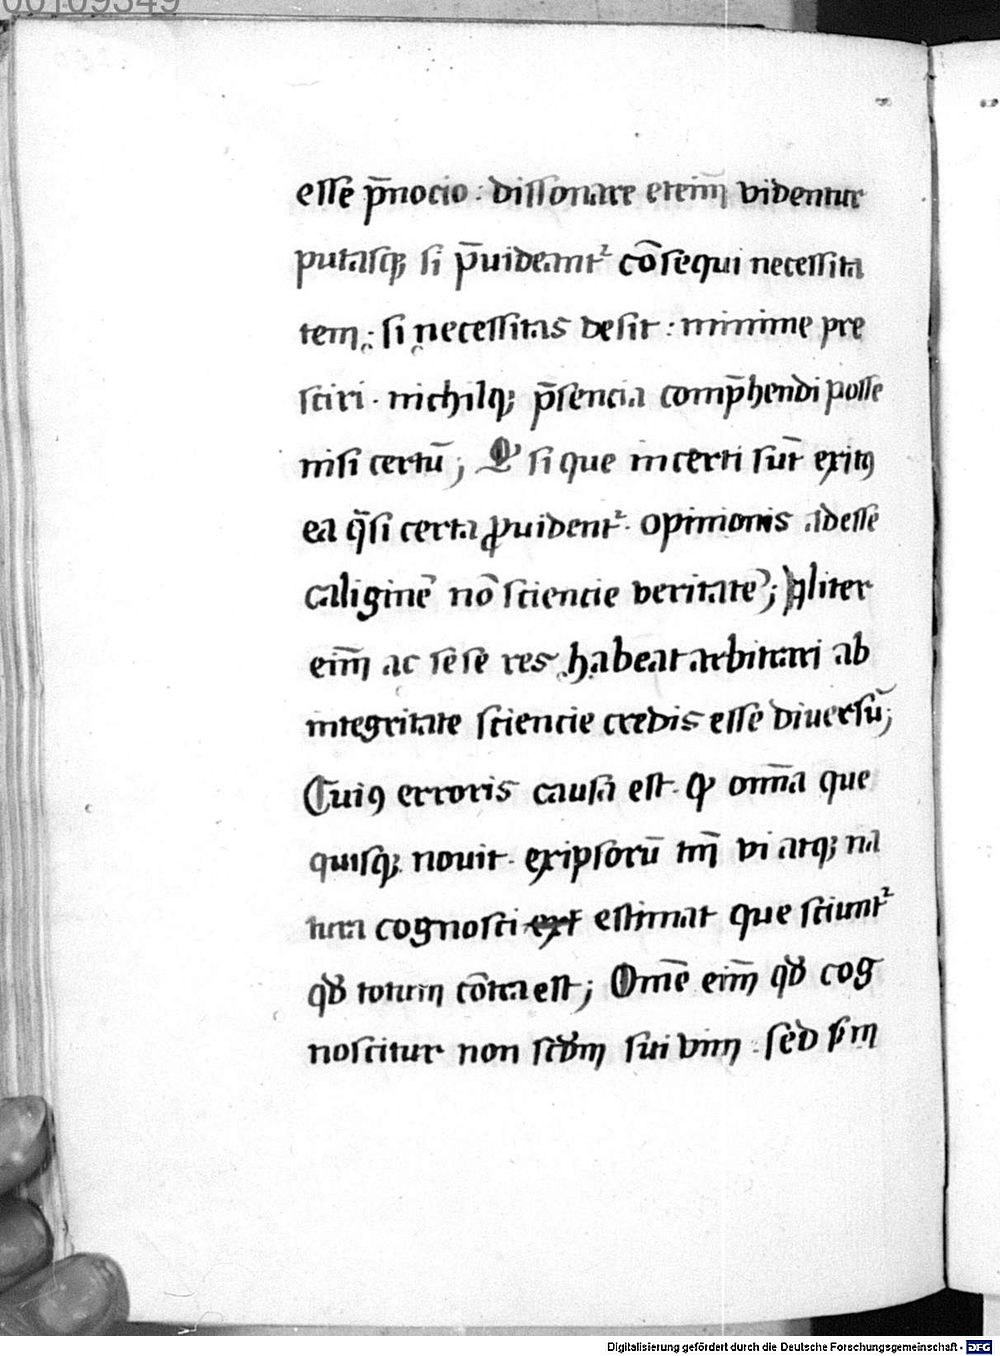 00109349
esse p̄nocio : dissonare eteim̄ videntur
putasqꝫ si p̄uideant᷑ cōsequi necessita
tem ; si necessitas desit : minime pre
sciri · nichilqꝫ p̄sencia comp̄hendi posse
nisi certū ; Qͥ si que incerti sūt exitꝰ
ea q̄si certa ꝓuident᷑ · opinionis adesse
caliginē nō sciencie veritatē ; Aliter
eim̄ ac sese res habeat arbitrari ab
integritate sciencie credis esse diuersū ;
Cuiꝰ erroris causa est · ꝙ om̄ia que
quisqꝫ nouit · ex ipsorū tm̄ vi atqꝫ na
tura cognosci ext estimat que sciunt᷑
qđ totum cōtra est ; Om̄e eim̄ qđ cog
noscitur non scđm sui vim · sed scđm
Digitalisierung gefördert durch die Deutsche Forschungsgemeinschaft - DFG